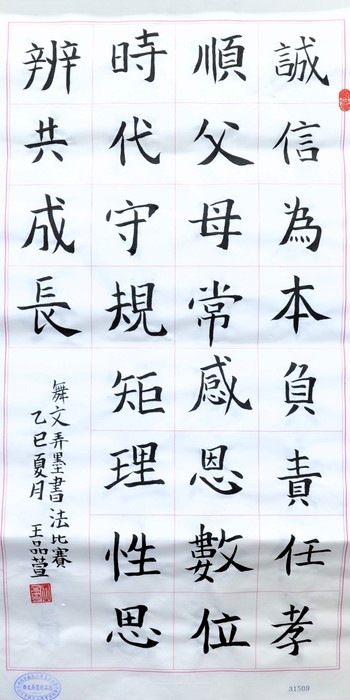 誠信為本負責任孝
順父母常感恩數位
時代守規矩理性思
辨共成長
舞文弄墨書法比賽
乙巳夏月 王品萱
31509